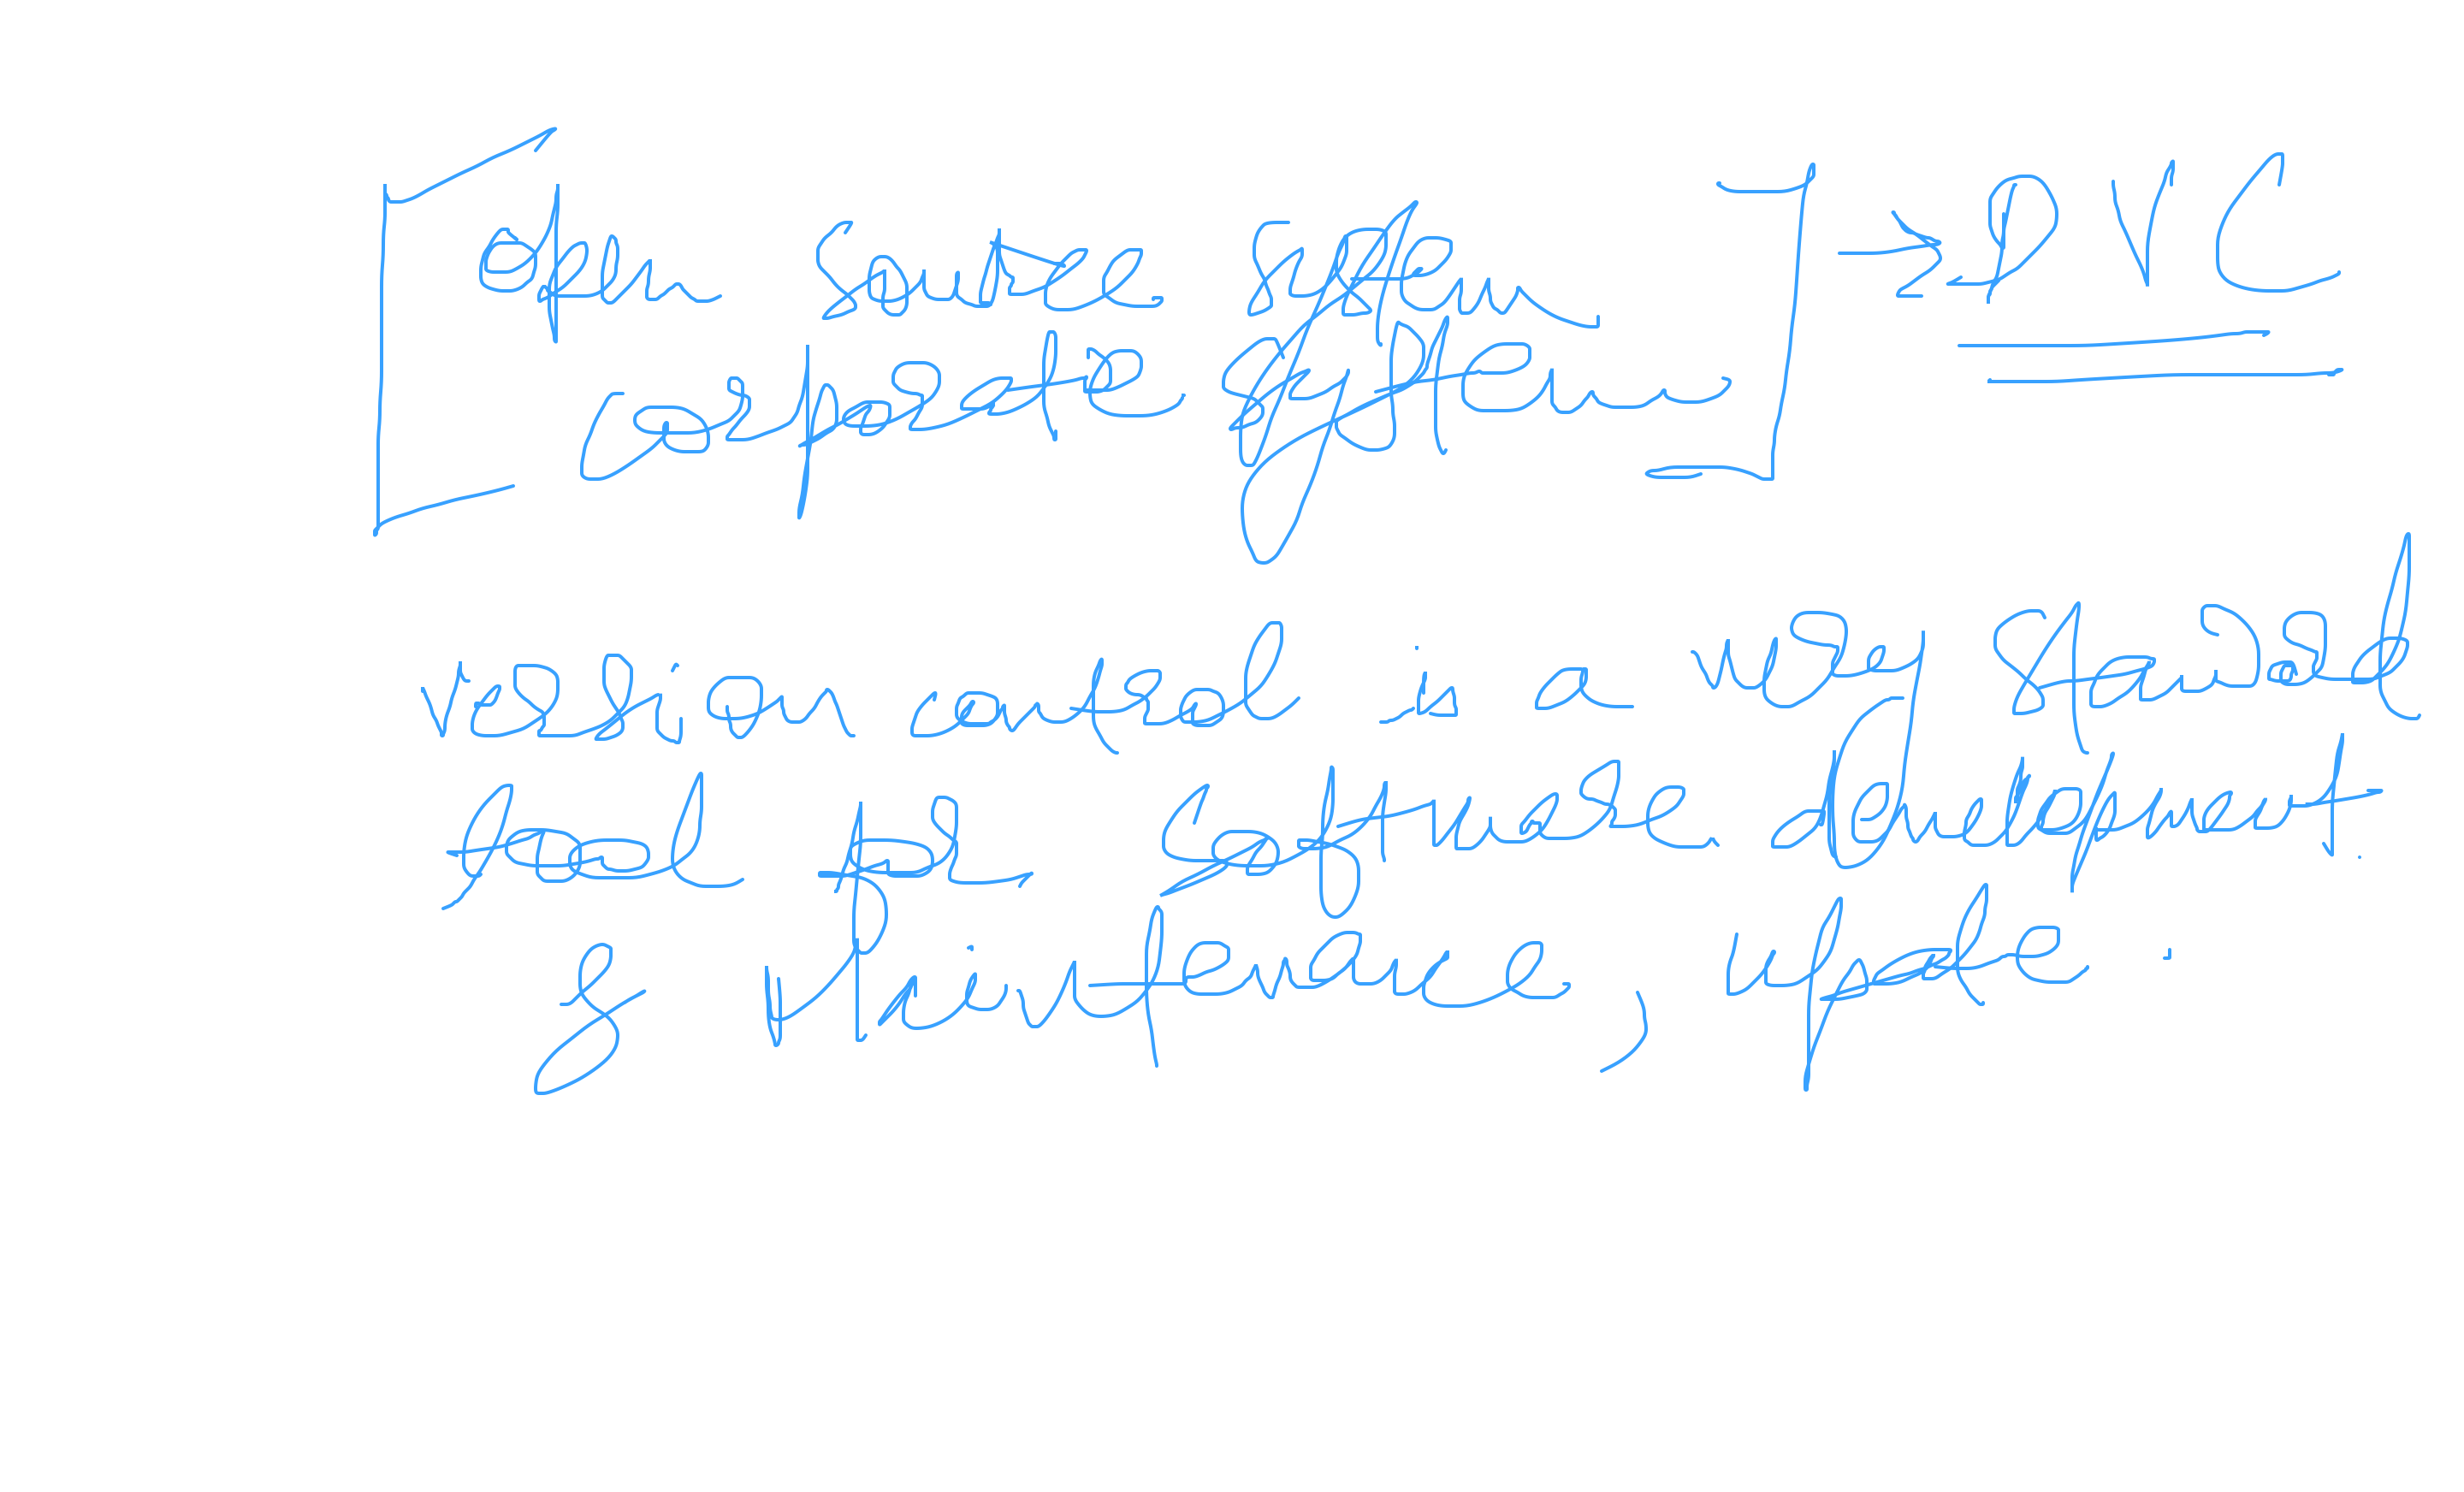 [Open Source System ] => DVC
Corporate System
Version control is a very standard
tool for software development.
& Maintenance, update.